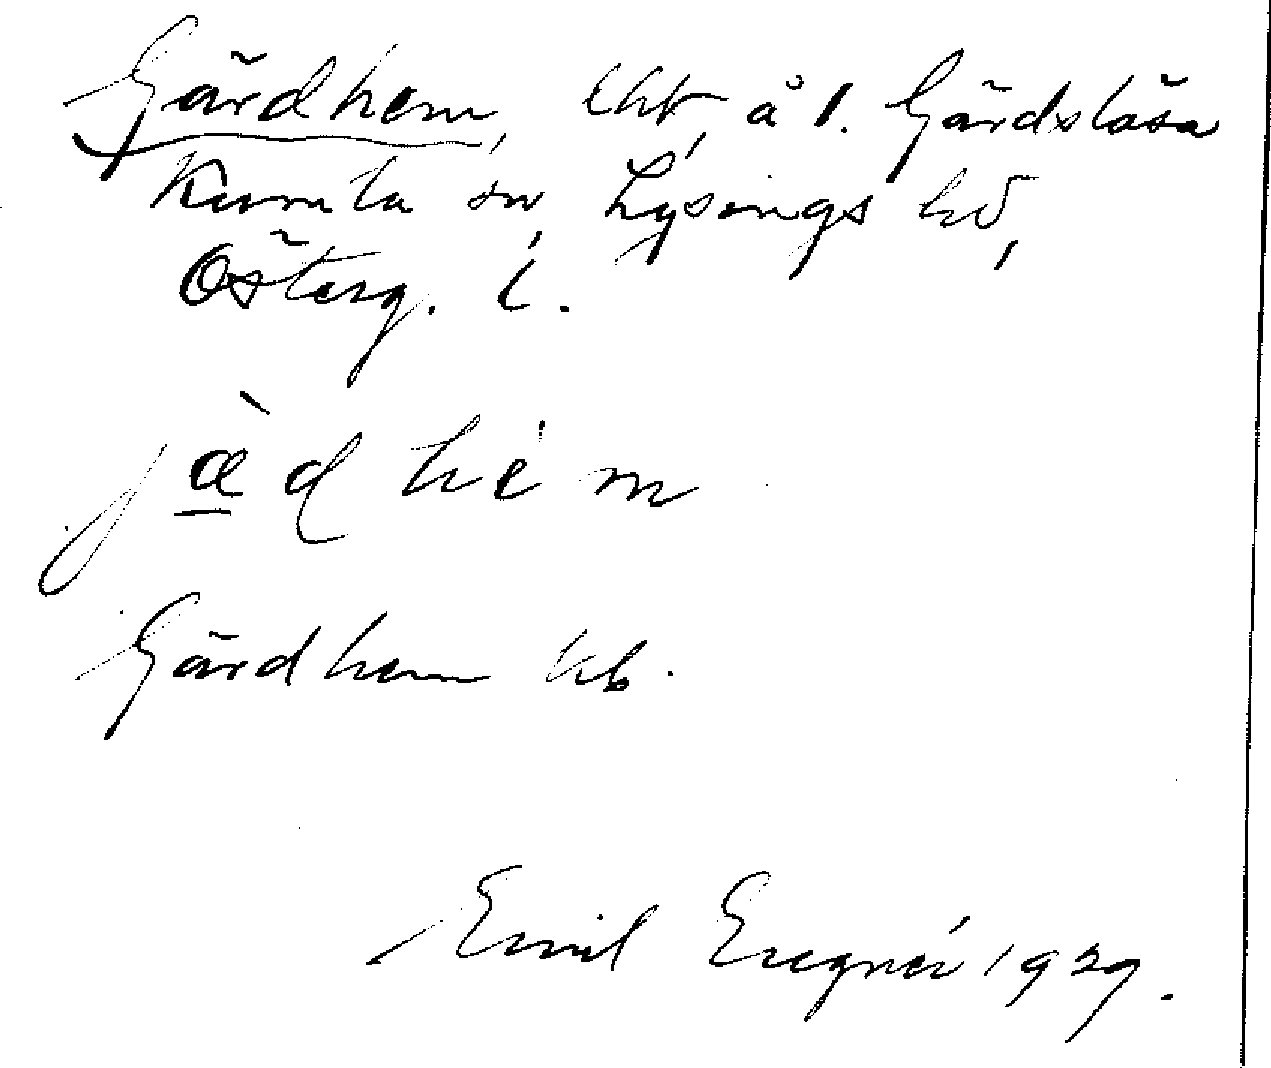 Gärdhem, lht, å 1. Gärdslösa
Kumla sn, Lysings hd,
Österg. l.
jæ̀d hèm
Gärdhem kb.
Emil Engnér 1929.